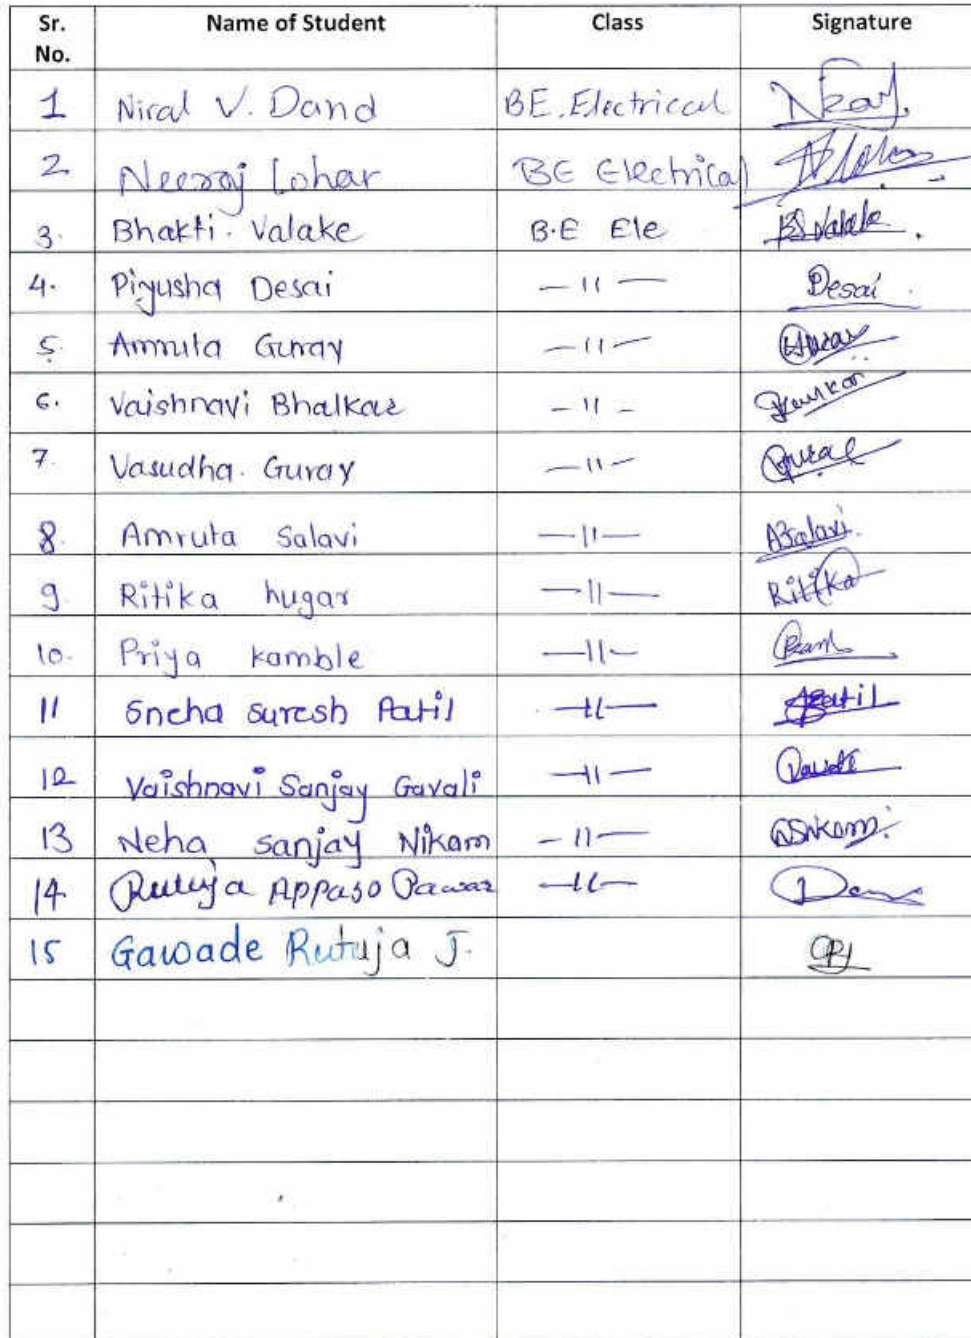 Sr. No. Name of Student Class Signature
1 Niral V. Dand BE. Electrical
2 Neeraj Lohar BE Electrical
3. Bhakti. Valake B.E Ele BSValake.
4. Piyusha Desai —11— Desai.
5. Amruta Gurav —11—
6. Vaishnavi Bhalkar —11—
7. Vasudha. Gurav —11—
8. Amruta Salavi —11— ASalavi.
9. Ritika hugar —11— Ritika
10. Priya kamble —11—
11 Sneha Suresh Patil —11— Patil
12 Vaishnavi Sanjay Gavali —11—
13 Neha sanjay Nikam —11—
14 Rutuja Appaso Pawar —11—
15 Gawade Rutuja J.